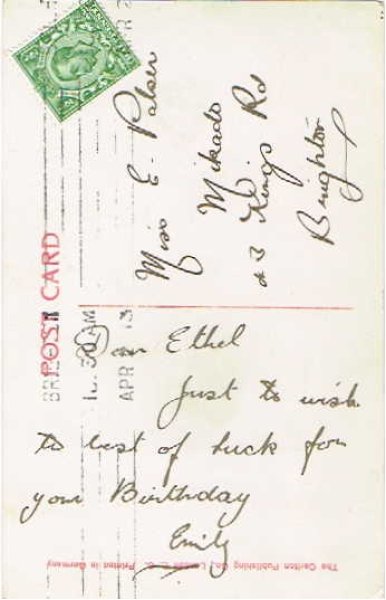 POST CARD
10.30 AM
APR 13
Miss E. Palser
Mikado
Kings Rd
Brighton
Dear Ethel
Just to wish
to best of luck for
your Birthday
Emily
The Carlton Publishing Co., London E.C. Printed in Germany